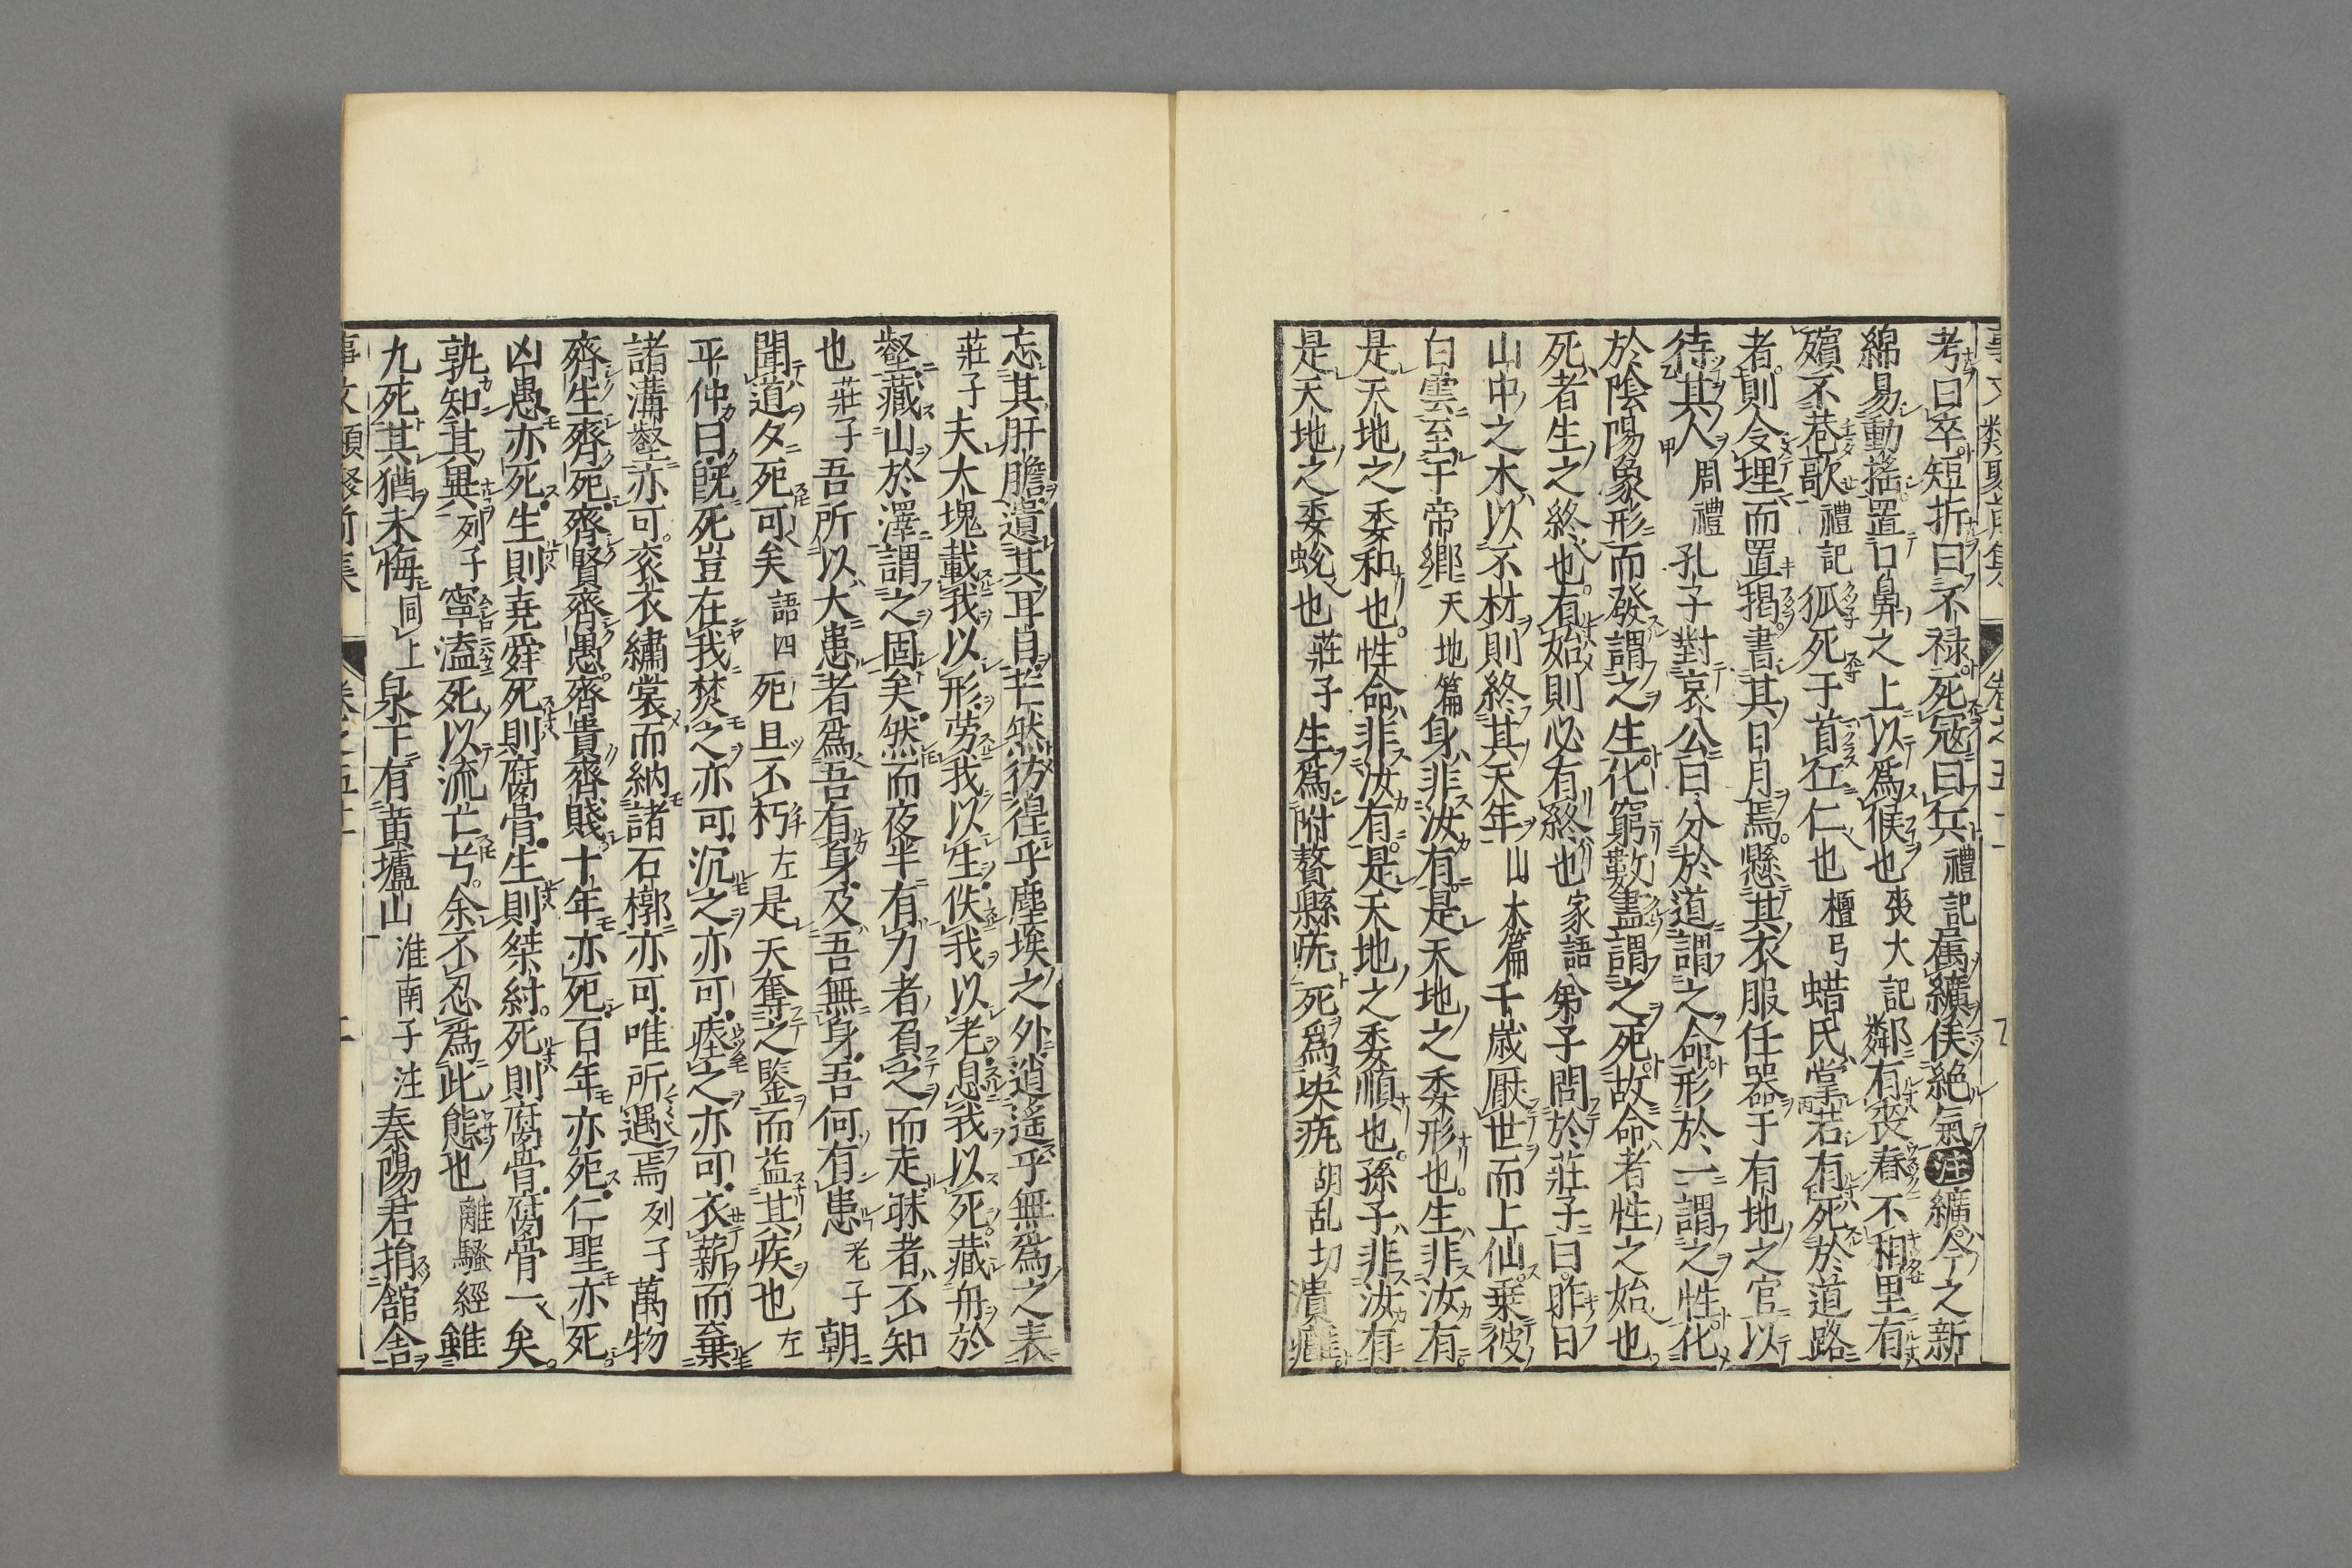 考曰卒短折曰不禄死寇曰兵禮記属纊俟絶氣注纊今之新
綿易動揺置口鼻之上以爲候也喪大記鄰有喪舂不相里有
殯不巷歌禮記狐死于首丘仁也檀弓蜡氏掌若有死於道路
者則令埋而置楬書其日月焉懸其衣服任器于有地之官以
待其人周禮孔子對哀公曰分於道謂之命形於一謂之性化
於陰陽象形而發謂之生化窮數盡謂之死故命者性之始也
死者生之終也有始則必有終也家語弟子問於莊子曰昨日
山中之木以不材則終其天年山木篇千歳厭世而上仙乗彼
白雲至于帝郷天地篇身非汝有是天地之委形也生非汝有
是天地之委和也性命非汝有是天地之委順也孫子非汝有
是天地之委蛻也莊子生爲附贅縣疣死爲㺯疣胡乱切潰癰
忘其肝膽遺其耳目芒然彷徨乎塵埃之外逍遙乎無爲之表
莊子夫大塊載我以形労我以生佚我以老息我以死藏舟於
壑藏山於澤謂之固矣然而夜半有力者負之而走昧者不知
也莊子吾所以大患者爲吾有身及吾無身吾何有患老子朝
聞道夕死可矣語四死且不朽左是天奪之鑒而益其疾也左
平仲曰既死豈在我焚之亦可沉之亦可瘞之亦可衣薪而棄
諸溝壑亦可衮衣繡裳而納諸石槨亦可唯所遇焉列子萬物
齊生齊死齊賢齊愚齊貴齊賤十年亦死百年亦死仁聖亦死
凶愚亦死生則堯舜死則腐骨生則桀紂死則腐骨腐骨一矣
孰知其異列子寧溘死以流亡兮余不忍爲此態也離騷經雖
九死其猶未悔同上泉下有黄壚山淮南子注秦陽君捐舘舎